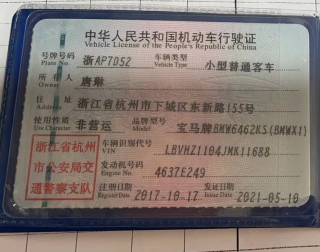 中华人民共和国机动车行驶证
Vehicle License of the People's Republic of China
号牌号码 浙AP7D52 车辆类型 小型普通客车
Plate No. Vehicle Type
所有人 唐琳
Owner
住址 浙江省杭州市下城区东新路155号
Address
使用性质 非营运 品牌型号 宝马牌BMW6462KS(BMWX1)
Use Character Model
浙江省杭州市公安局交通警察支队
车辆识别代号 LBVHZ1104JMK11688
VIN
发动机号码 4637E249
Engine No.
注册日期 2017-10-17 发证日期 2021-05-10
Register Date Issue Date